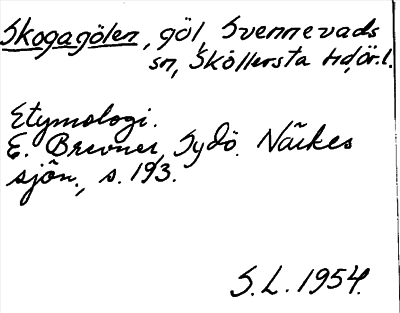 Skogagölen, göl, Svennevads
sn, Sköllersta hd, ör. l.
Etymologi.
E. Brevner, Sydö. Närkes
sjön., s. 193.
S. L. 1954.